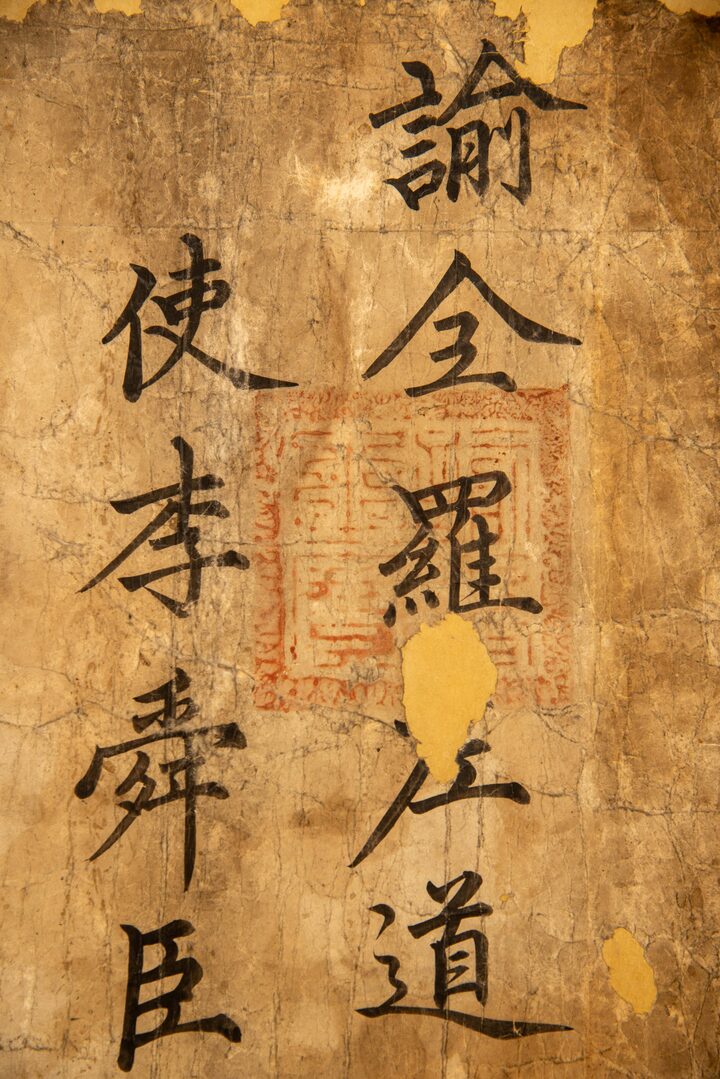 諭全羅左道
使李舜臣